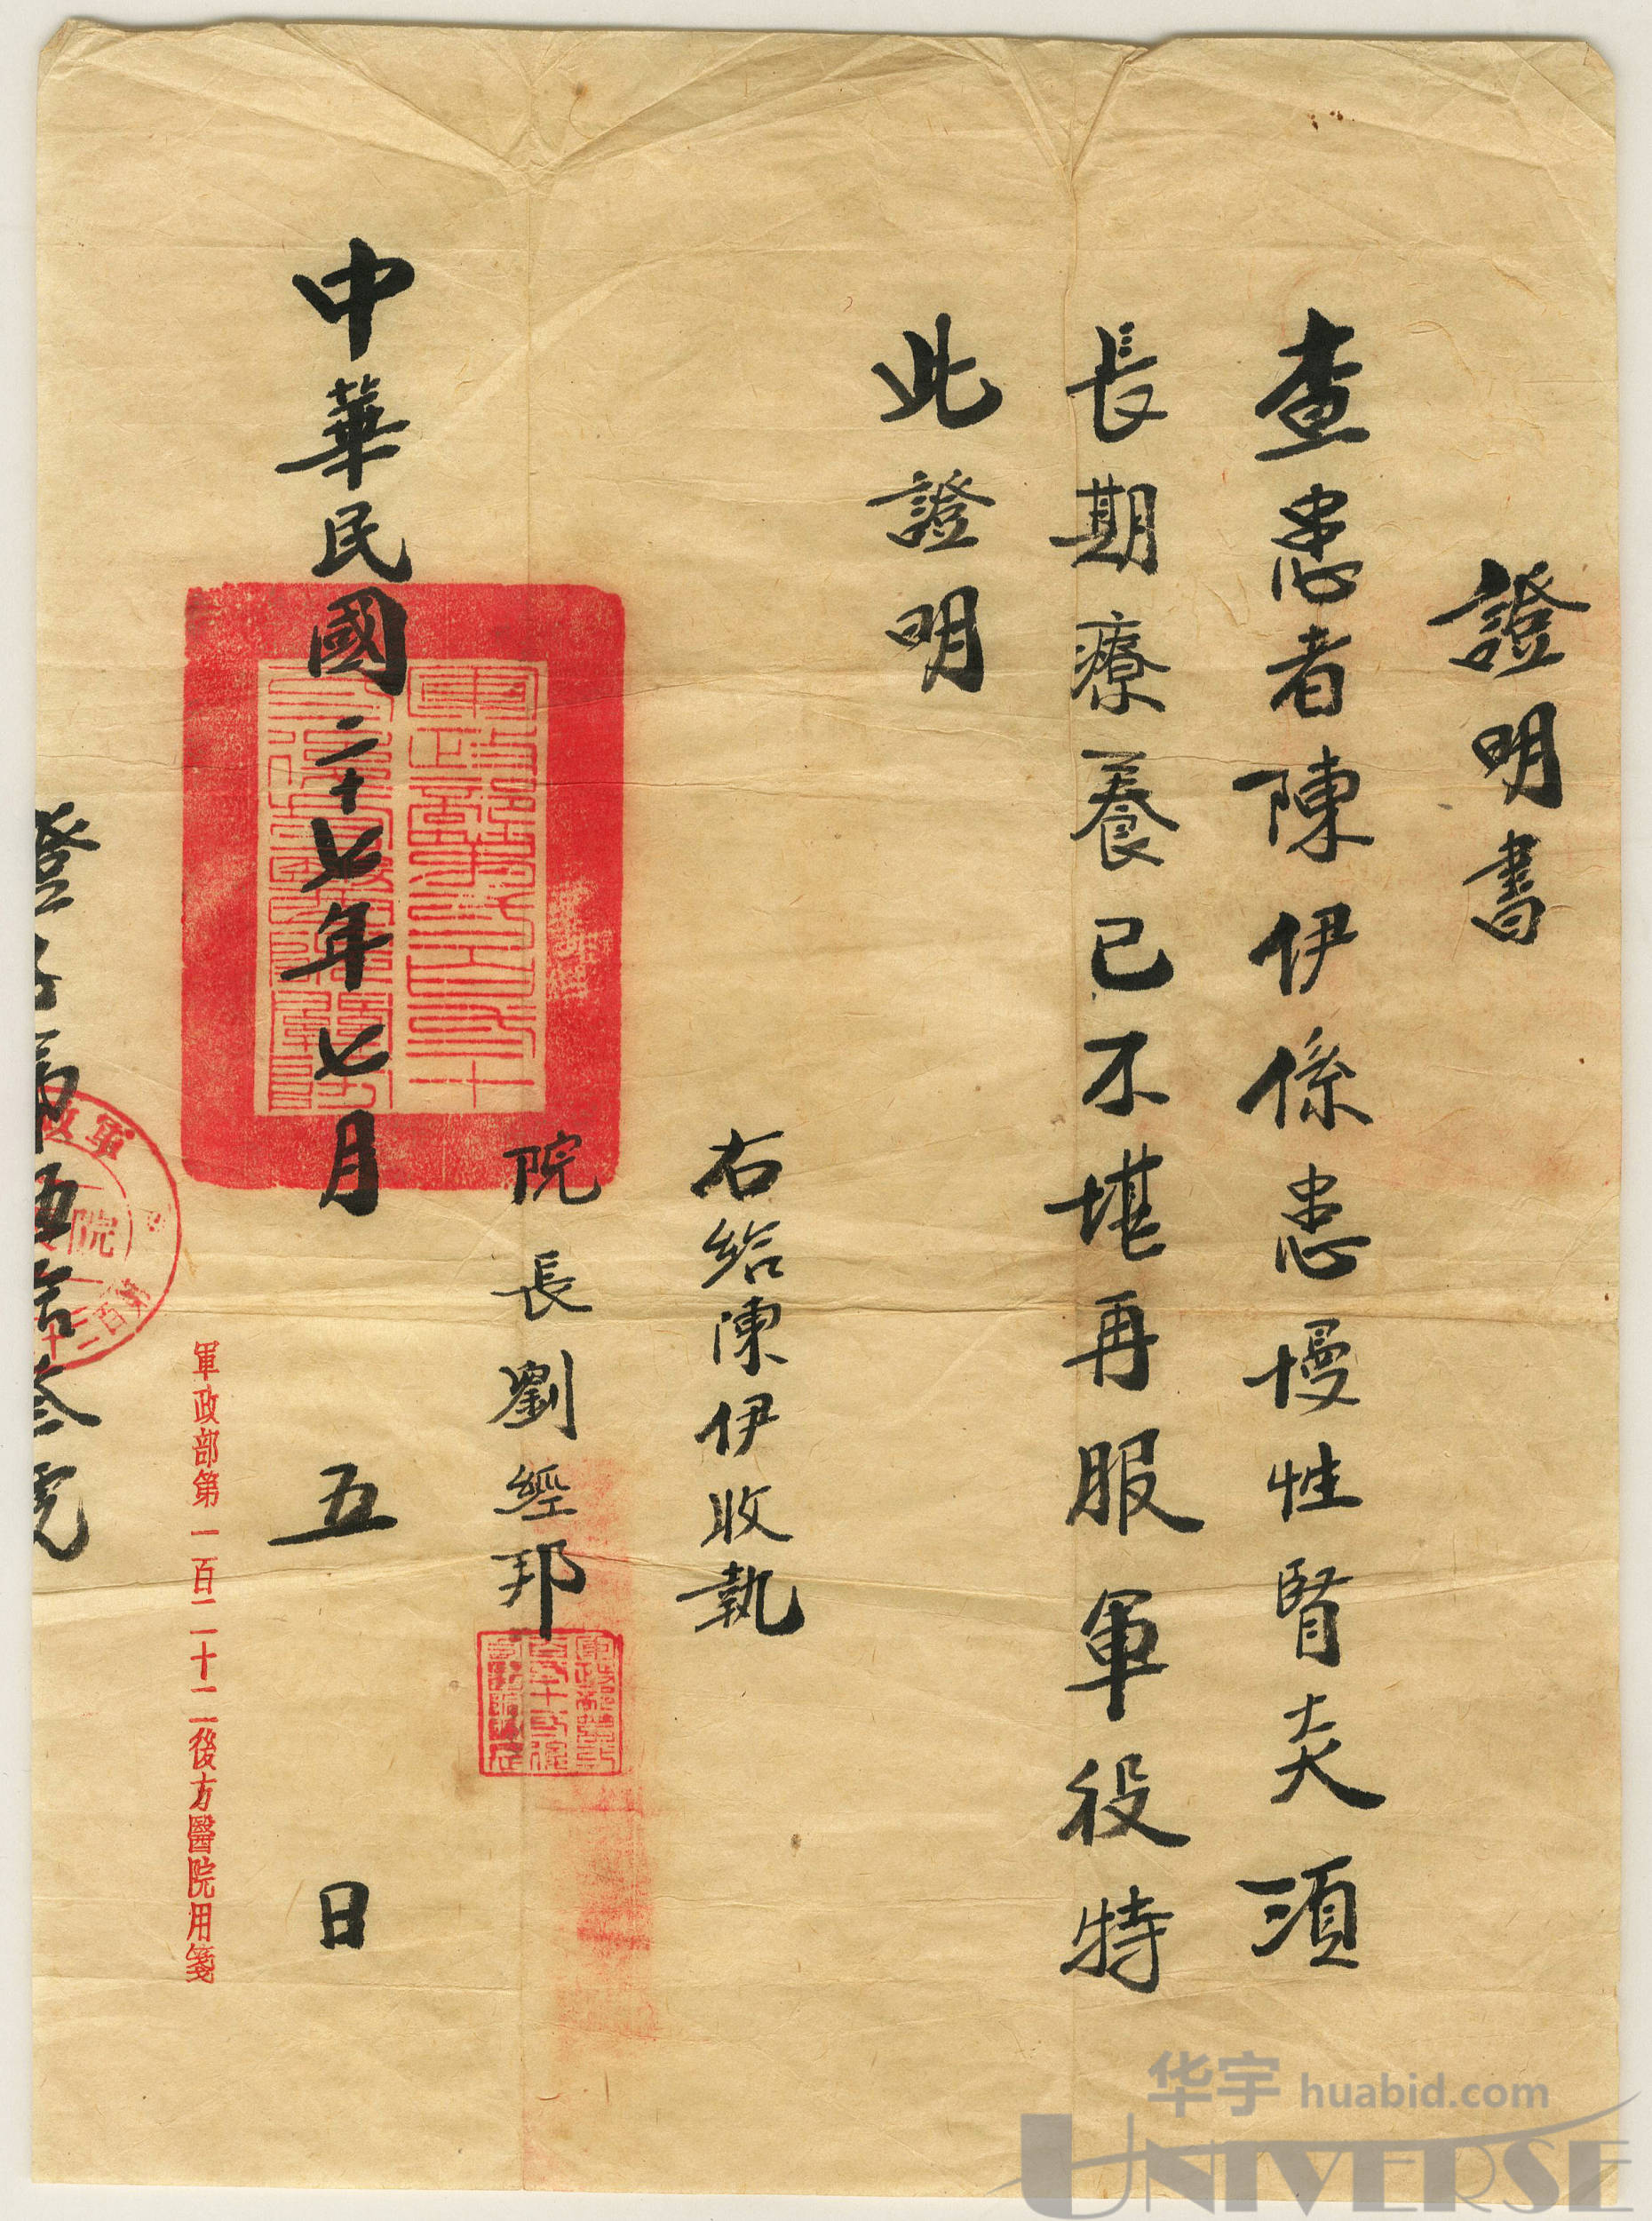 證明書
查患者陳伊係患慢性腎炎須
長期療養已不堪再服軍役特
此證明
右給陳伊收執
院長劉經邦
中華民國二十七年七月五日
軍政部第一百二十二後方醫院用箋
第伍拾叁號
華宇 huabid.com
UNIVERSE